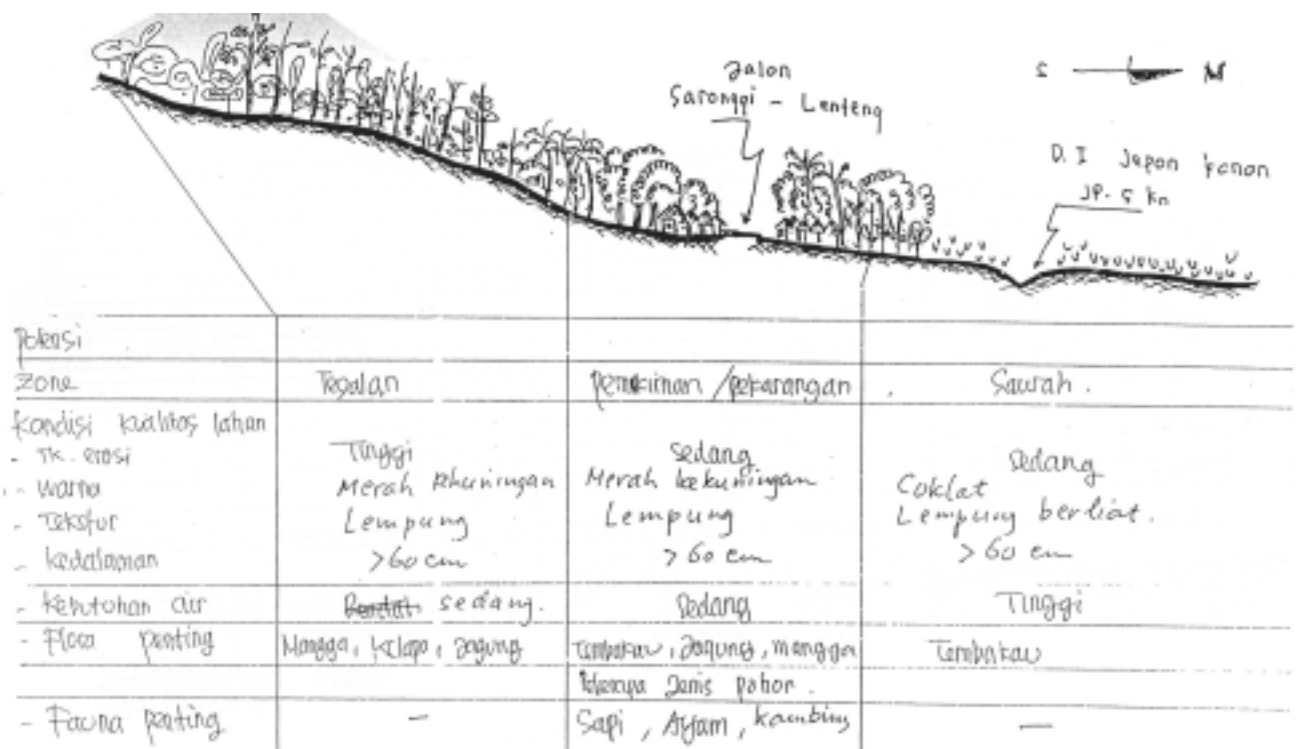 Jalan
Saronggi - Lenteng
S
D.I Japon Kanan
JP. 5 kn
Potensi
Zone Tegalan Pemukiman /pekarangan Sawah.
Kondisi kualitas lahan
- Tk. erosi Tinggi sedang sedang
- Warna Merah kekuningan Merah kekuningan Coklat
- Tekstur Lempung Lempung Lempung berliat.
- kedalaman >60 cm >60 cm >60 cm
- Kebutuhan air sedang. Sedang Tinggi
- Flora penting Mangga, Kelapa, Jagung Tembakau, Jagung, mangga Tembakau
Jenis pohon.
- Fauna penting - Sapi, Ayam, kambing -